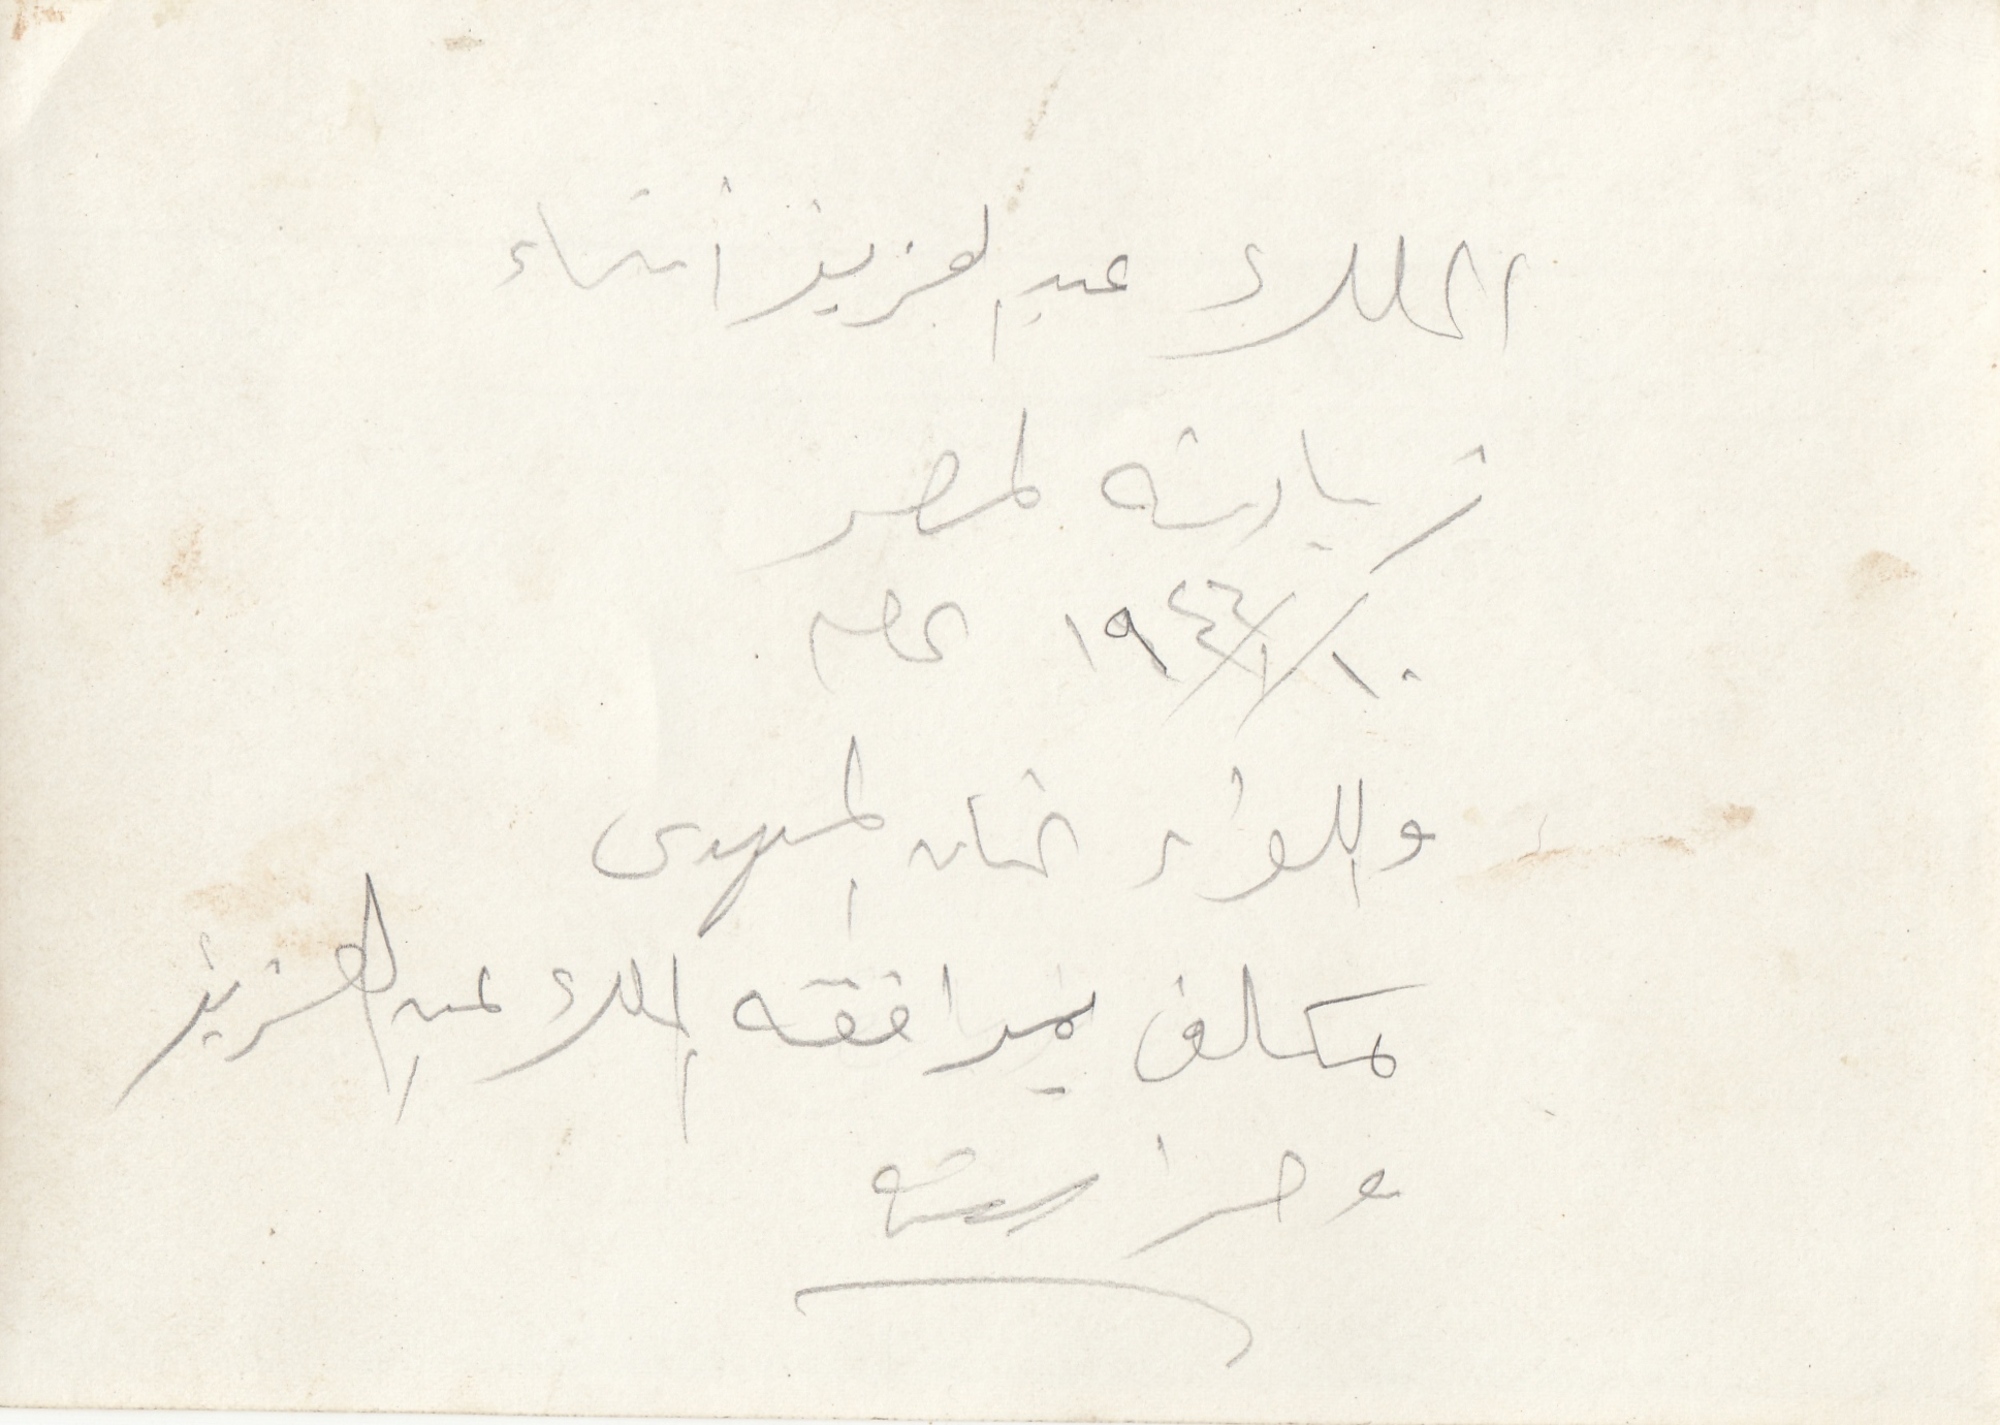 الملك عبد العزيز أثناء
زيارته لمصر
١٠/١/١٩٤٦
واللواء عثمان المهدى
مكلف بمرافقه الملك عبد العزيز
وحراسته